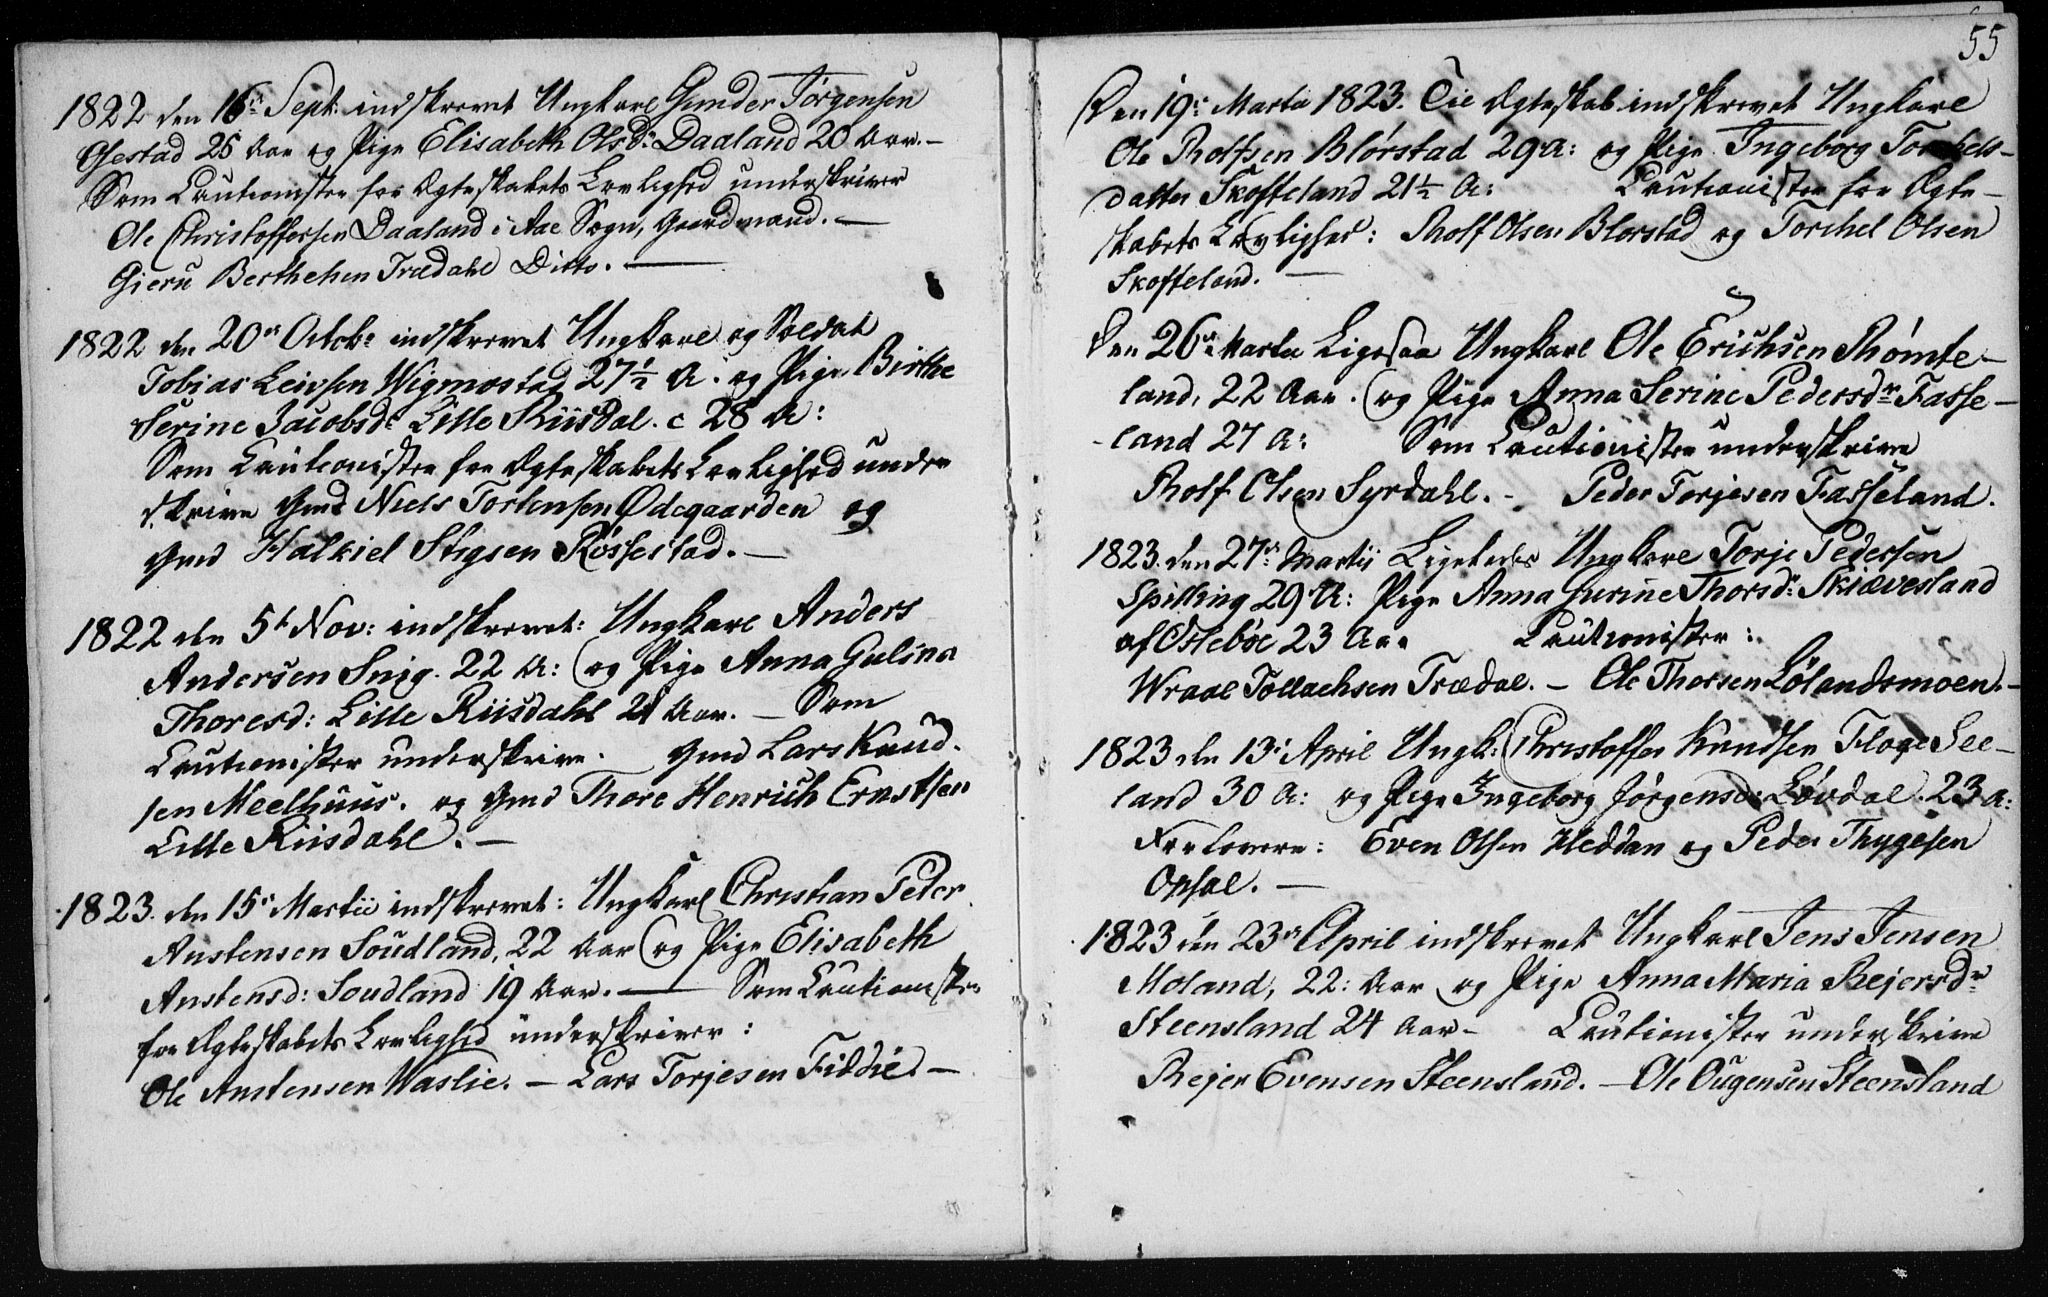 1822 den 16de Sept: indskrevet Ungkarl Gunder Jørgensen
Gsestad 25 Aar og Pige Elisabeth Olsdr: Daaland 20 Aar. –
Som Cautionister for Ægteskabets Lovlighed underskriver
Ole Christoffersen Daaland i Aae Sogn, Gaardmand. –
Gieru Berthehen Trædahl Ditto. –
1822 den 20de Octobr indskrevet Ungkarl og Soldat
Tobias Leivsen Wigmostad 27½ A. og Pige Birthe
Serine Jacobsdr Lille Riisdal. c 28 A:
Som Cautionister for Ægteskabets Lovlighed under
skrive Gmd Niels Torkensen Ødegaarden og
Gmd Halkiel Stigsen Røssestad. –
1822 den 5t Nov: indskrevet: Ungkarl Anders
Andersen Snig. 22 A: og Pige Anna Gulina
Thoresd: Lille Riisdahl 21 Aar. – Som
Cautionister underskrive. Gmd Lars Knud-
sen Meelhuus. og Gmd Thore Henrich Ernstsen
Lille Riisdahl. –
1823. den 15de Martii indskrevet: Ungkarl Christian Peder
Austensen Soudland, 22 Aar og Pige Elisabeth
Austensd: Soudland 19 Aar. – Som Cautionister
for Ægteskabets Lovlighed underskriver:
Ole Austensen Waslie. – Lars Torjesen Fiddie. –
55
Den 19de Martii 1823. Til Ægteskab indskrevet Ungkarl
Ole Rolfsen Blørstad 29 A: og Pige Ingeborg Torkels-
datter Skoffeland 21½ A: Cautionister for Ægte-
skabets Lovlighed: Rolf Olsen Blørstad og Torchel Olsen
Skoffeland. –
Den 26de Martii Ligesaa Ungkarl Ole Erichsen Rømte-
land, 22 Aar. og Pige Anna Serine Pedersdr Fasse-
land 27 A: Som Cautionister underskrive
Rolf Olsen Syrdahl. – Peder Torjesen Fasseland.
1823. den 27de Martii Ligeledes Ungkarl Torje Pedersen
Spilling 29 A: Pige Anna Gurine Thorsdr: Skiævesland
af Ostebøe 23 Aar Cautionister:
Wraal Tollachsen Trædal. – Ole Thorsen Lølandsmoen. –
1823 den 13de April Ungk: Christoffer Knudsen Floge See-
land 30 A: og Pige Ingeborg Jørgensd: Løvdal. 23 A:
Forlovere: Even Olsen Heddan og Peder Thygesen
Opsal. –
1823 den 23de April indskrevet Ungkarl Jens Jensen
Moland, 22: Aar og Pige Anna Maria Rejersdr
Steensland 24 Aar – Cautionister underskrive
Rejer Evensen Steensland. – Ole Ougensen Steensland